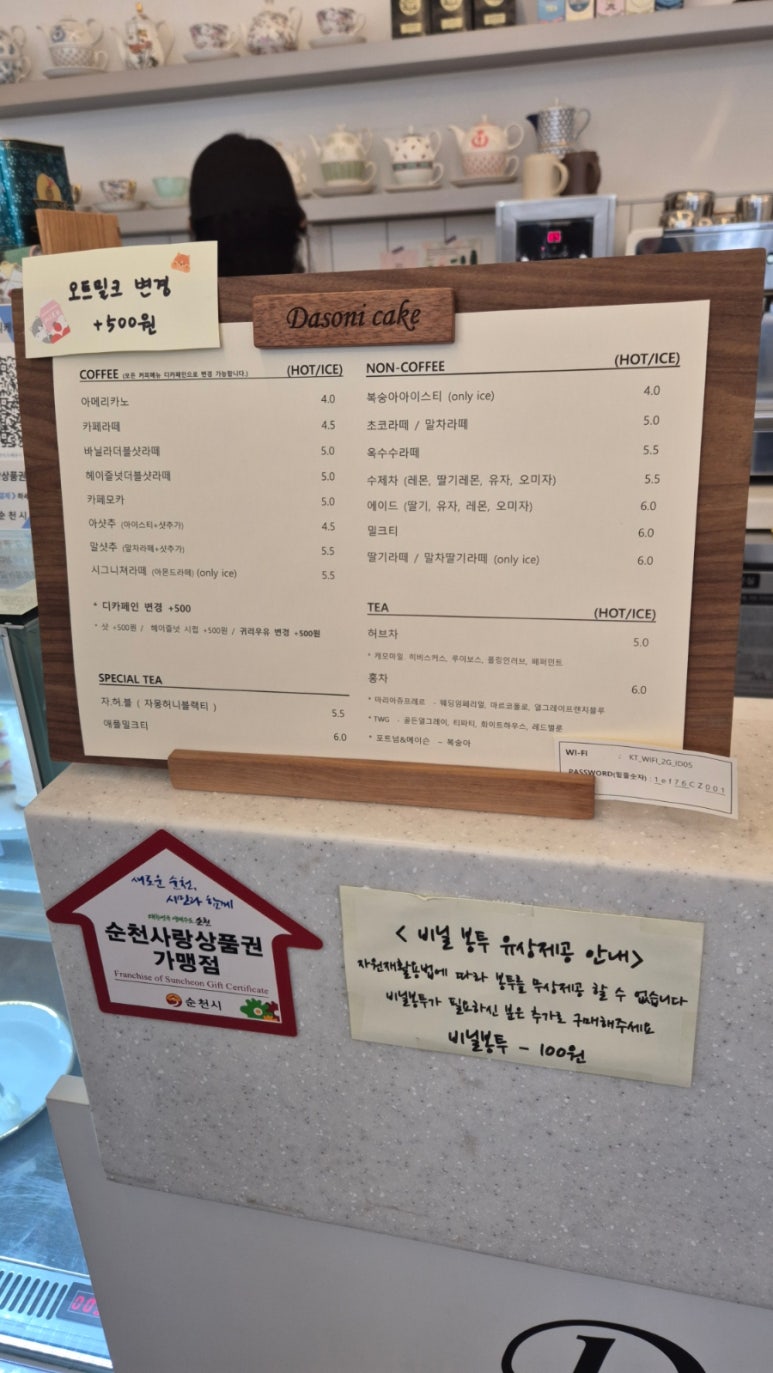 오트밀크 변경
+500원
Dasoni cake
COFFEE (모든 커피메뉴 디카페인으로 변경 가능합니다.) (HOT/ICE)
아메리카노 4.0
카페라떼 4.5
바닐라더블샷라떼 5.0
헤이즐넛더블샷라떼 5.0
카페모카 5.0
아샷추 (아이스티+샷추가) 4.5
말샷추 (말차라떼+샷추가) 5.5
시그니쳐라떼 (아몬드라떼) (only ice) 5.5
* 디카페인 변경 +500
* 샷 +500원 / 헤이즐넛 시럽 +500원 / 귀리우유 변경 +500원
SPECIAL TEA
자.허.블 ( 자몽허니블랙티 ) 5.5
애플밀크티 6.0
NON-COFFEE (HOT/ICE)
복숭아아이스티 (only ice) 4.0
초코라떼 / 말차라떼 5.0
옥수수라떼 5.5
수제차 (레몬, 딸기레몬, 유자, 오미자) 5.5
에이드 (딸기, 유자, 레몬, 오미자) 6.0
밀크티 6.0
딸기라떼 / 말차딸기라떼 (only ice) 6.0
TEA (HOT/ICE)
허브차 5.0
* 캐모마일, 히비스커스, 루이보스, 롤링인러브, 페퍼민트
홍차 6.0
* 마리아쥬프레르 - 웨딩임페리얼, 마르코폴로, 얼그레이프렌치블루
* TWG - 골든얼그레이, 티파티, 화이트하우스, 레드멜론
* 포트넘&메이슨 - 복숭아
WI-FI : KT_WIFI_2G_ID05
PASSWORD(밑줄숫자) : 1ef76CZ001
새로운 순천,
시민과 함께
순천
순천사랑상품권
가맹점
Franchise of Suncheon Gift Certificate
순천시
< 비닐 봉투 유상제공 안내>
자원재활용법에 따라 봉투를 무상제공 할 수 없습니다
비닐봉투가 필요하신 분은 추가로 구매해주세요
비닐봉투 - 100원